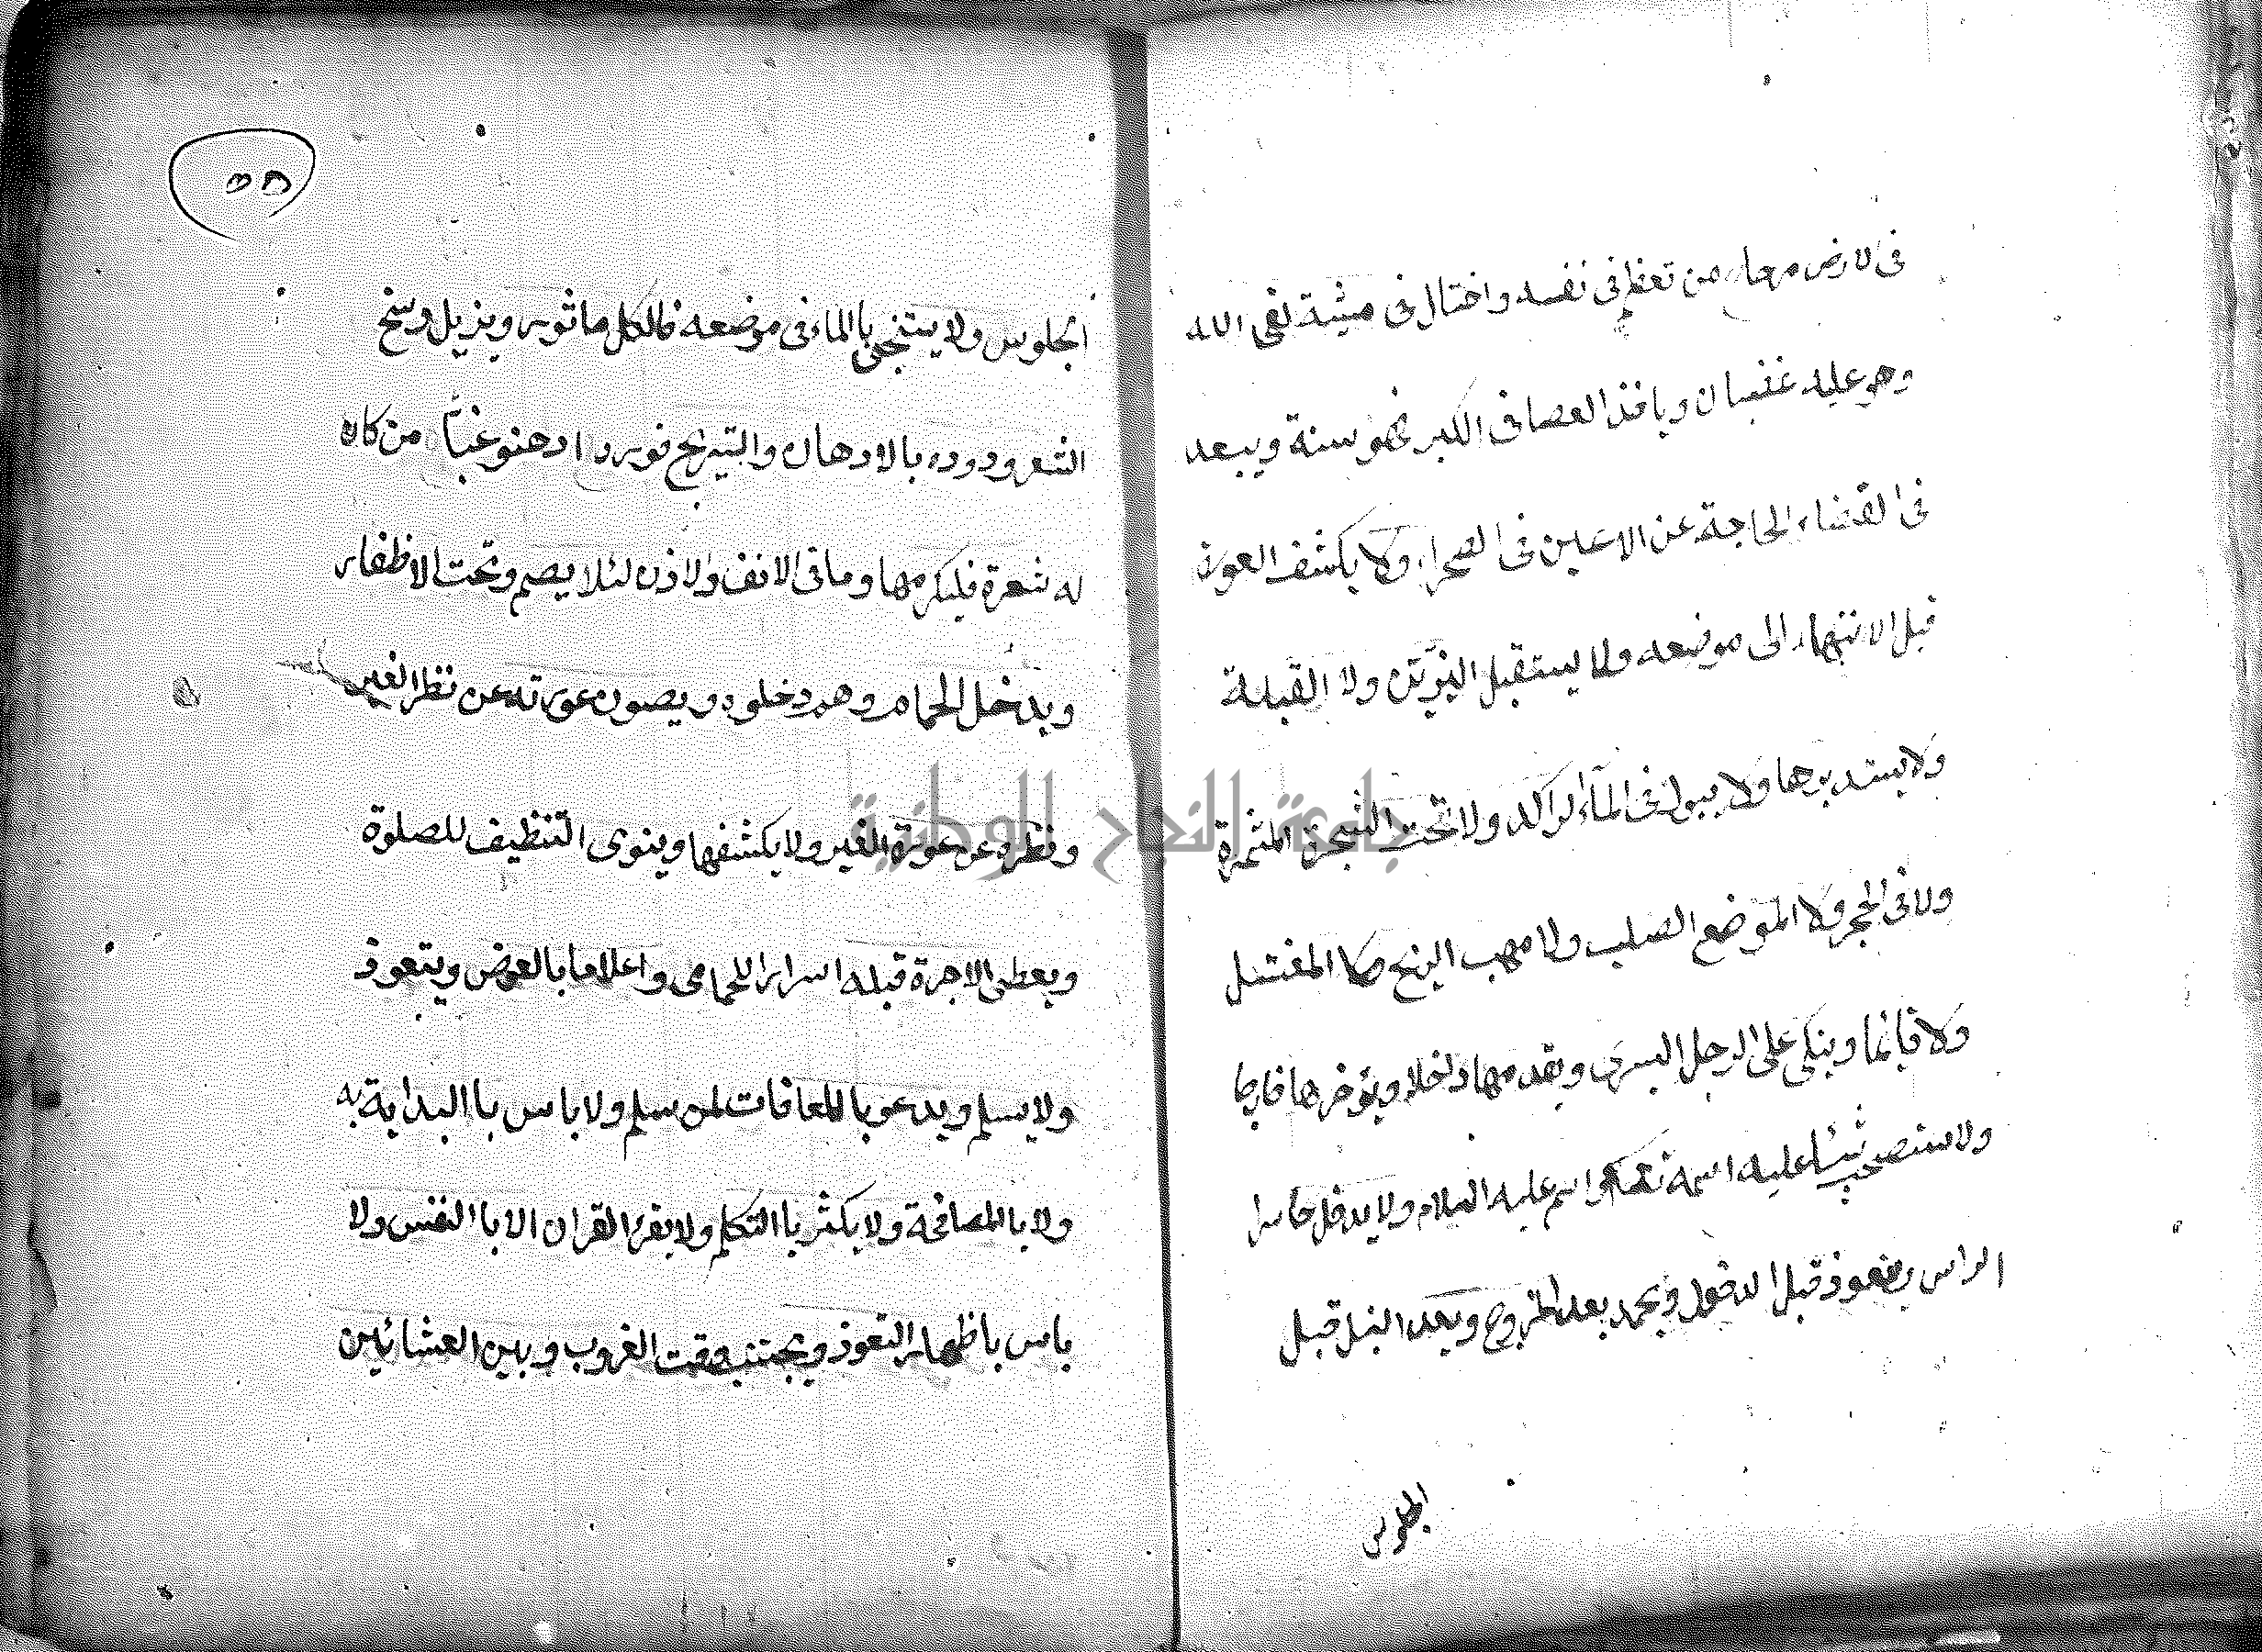 فى لارض مهحا، من تعظم فى نفسه واختال فى مشية لقى الله
وهو عليه غضبان وياخذ العصا فى الكبر فهو سنة ويبعد
فى القضاء الحاجة عن الاعين فى الصحراء ولا يكشف العورة
قبل الانتهاء الى موضعه ولا يستقبل النيرين ولا القبلة
ولا يستدبرها ولا يبول فى الماء الراكد ولا تحت الشجرة المثمرة
ولا فى الحجر ولا الموضع الصلب ولا مهب الريح ولا المغتسل
ولا قائما ويتكى على الرجل اليسرى ويقدمها داخلا ويؤخرها خارجا
ولا يستصحب شيئا عليه اسمه تعالى واسم عليه السلام ولا يدخل حاسرا
الراس ويتعوذ قبل الدخول ويحمد بعد الخروج وبعد النبل قبل
الجلوس
٥٥
الجلوس ولا يستنجى بالماء فى موضعه فالكل ماثور ويزيل وسخ
الشعر ودوده بالادهان والتسريح فورد ادهنو غبا من كان
له شعرة فليكرمها وما فى الانف والاذن لئلا يصم وتحت الاظفار
ويدخل الحمام وهم دخلوه ويصون عورته عن نظر الغير
ونظره عن عورة الغير ولا يكشفها وينوى التنظيف للصلوة
ويعطى الاجرة قبله اسرارا للحمامى واعلاما بالعوض ويتعوذ
ولا يسلم ويدعو با المعافات لمن سلم ولا باس با البداية به
ولا با المصافحة ولا يكثر با التكلم ولا يقرء القران الا با النفس ولا
باس باظهار التعوذ ويجتنب وقت الغروب وبين العشائين
جامعة النجاح الوطنية